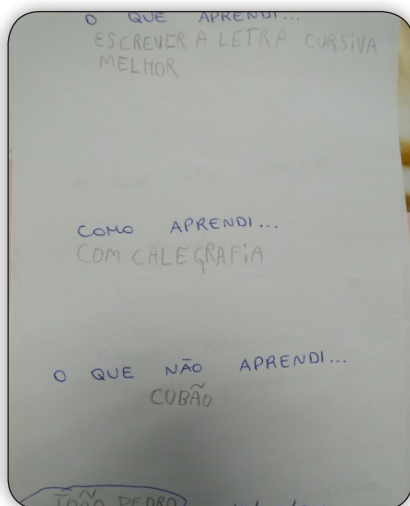 O QUE APRENDI...
ESCREVER A LETRA CURSIVA
MELHOR
COMO APRENDI...
COM CALEGRAFIA
O QUE NÃO APRENDI...
CUBÃO
JOÃO PEDRO